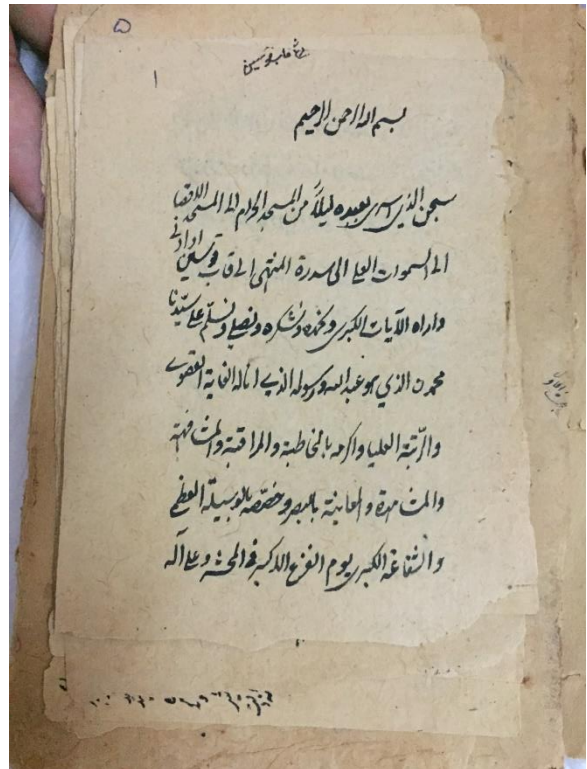 ۵
۱
قاب قوسین
بسم الله الرحمن الرحیم
سبحن الذی اسری بعبده لیلاً من المسجد الحرام الی المسجد الاقصا
الی السموات العلی الی سدرة المنتهی الی قاب قوسین او ادنی
و اراه الآیات الکبری و نحمده و نشکره و نصلی و نسلم علی سیّدنا
محمدن الذی هو عبد الله و رسوله الذی اناله الغایة القصوی
والرّتبة العلیا و اکرمه بالمخاطبة والمراقبة والمشافهة
والمشاهدة والمعاینة بالبصر و خصّصه بالوسیلة العظمی
والشفاعة الکبری یوم الفزع الاکبر فی المحشر و علی آله